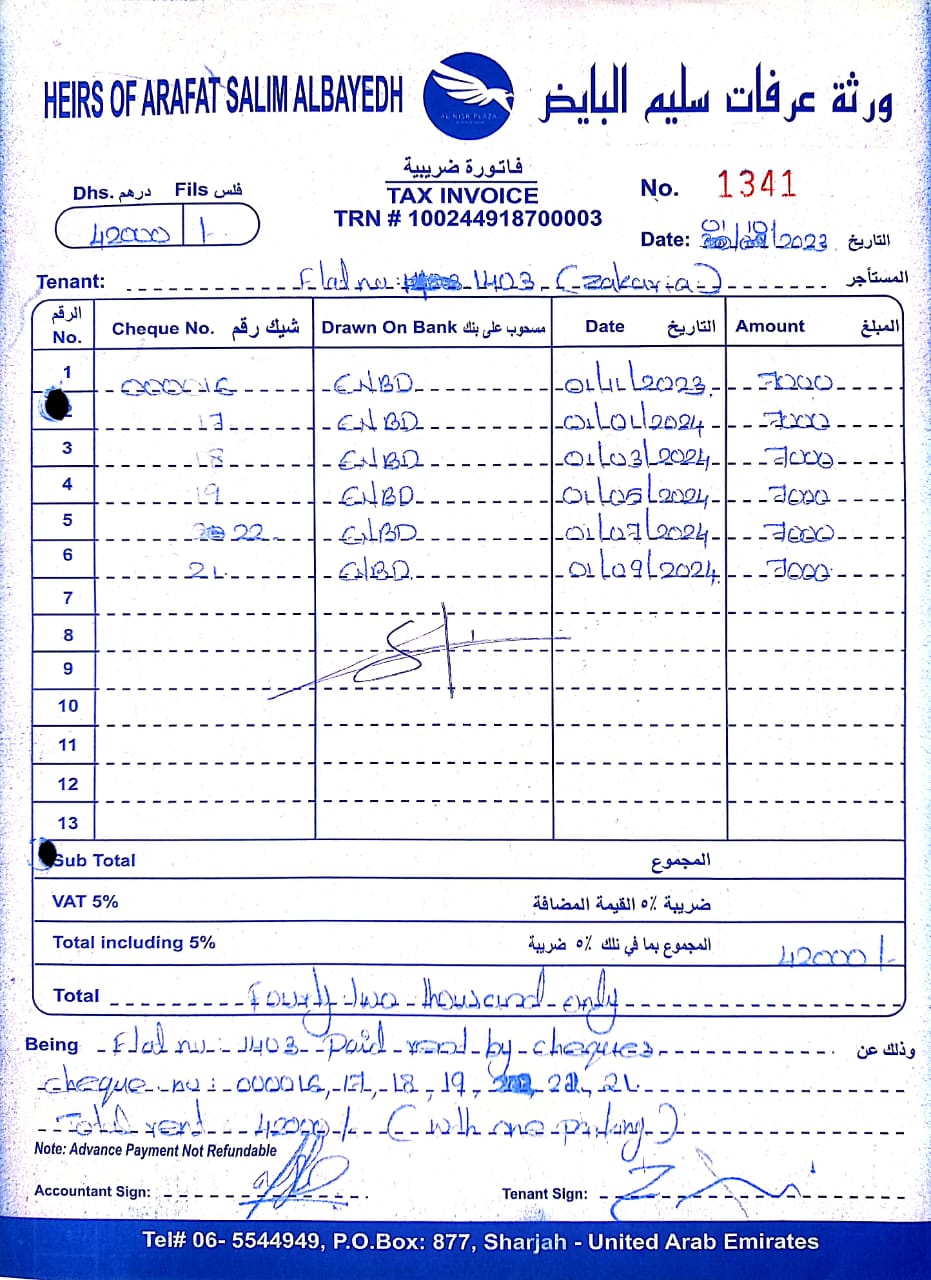 HEIRS OF ARAFAT SALIM ALBAYEDH
AL NISR PLAZA
ورثة عرفات سليم البايض
فاتورة ضريبية
TAX INVOICE
TRN # 100244918700003
Dhs. درهم Fils فلس
42000 /-
No. 1341
Date: 01/10/2023 التاريخ
Tenant: Flat no: 1403 (Zakaria) المستأجر
الرقم No. Cheque No. شيك رقم Drawn On Bank مسحوب على بنك Date التاريخ Amount المبلغ
1 000016 ENBD 01/11/2023 7000
2 17 ENBD 01/01/2024 7000
3 18 ENBD 01/03/2024 7000
4 19 ENBD 01/05/2024 7000
5 22 ENBD 01/07/2024 7000
6 21 ENBD 01/09/2024 7000
7
8
9
10
11
12
13
Sub Total المجموع
VAT 5% ضريبة ٥٪ القيمة المضافة
Total including 5% المجموع بما في ذلك ٥٪ ضريبة 42000/-
Total Fourty two thousand only
Being Flat no: 1403 Paid rent by cheques وذلك عن
cheque no: 000016, 17, 18, 19, 22, 21
Total rent: 42000/- (with one parking)
Note: Advance Payment Not Refundable
Accountant Sign: Tenant Sign:
Tel# 06- 5544949, P.O.Box: 877, Sharjah - United Arab Emirates